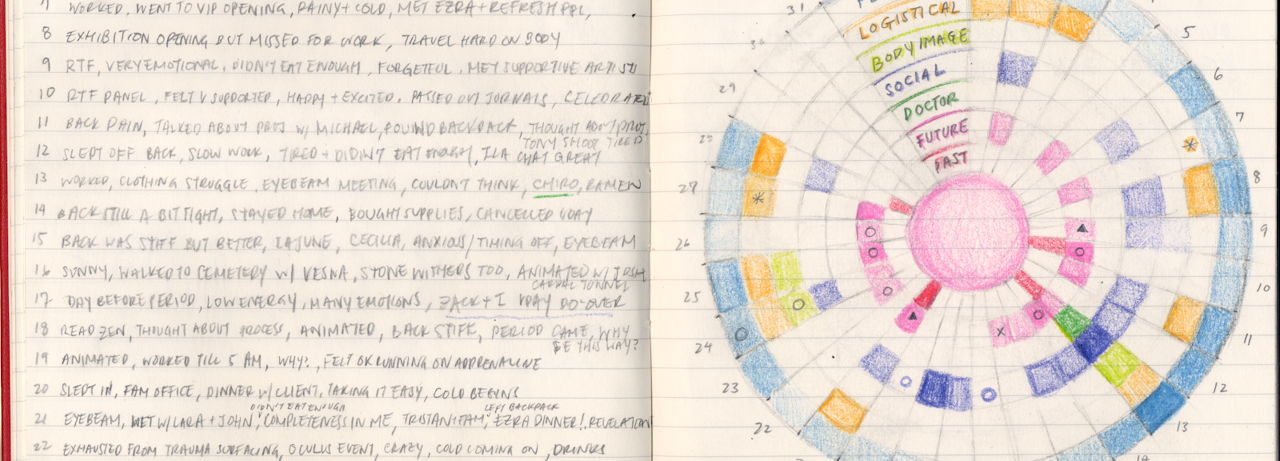 7 WORKED, WENT TO VIP OPENING, RAINY + COLD, MET EZRA + REFRESH PPL,
8 EXHIBITION OPENING BUT MISSED FOR WORK, TRAVEL HARD ON BODY
9 RTF, VERY EMOTIONAL, DIDN'T EAT ENOUGH, FORGETFUL, MET SUPPORTIVE ARTISTS
10 RTF PANEL, FELT V SUPPORTED, HAPPY + EXCITED, PASSED OUT JORNALS, CELEBRATED
11 BACK PAIN, TALKED ABOUT PROJ W/ MICHAEL, FOUND BACKPACK, THOUGHT ABOUT
TONY SHOOT TIRED
12 SLEPT OFF BACK, SLOW WORK, TIRED + DIDIN'T EAT ENOUGH, ILA CHAT GREAT
13 WORKED, CLOTHING STRUGGLE, EYEBEAM MEETING, COULDN'T THINK, CHIRO, RAMEN
14 BACK STILL A BIT TIGHT, STAYED HOME, BOUGHT SUPPLIES, CANCELLED VDAY
15 BACK WAS STIFF BUT BETTER, LAJUNE, CECILIA, ANXIOUS / TIMING OFF, EYEBEAM
16 SUNNY, WALKED TO CEMETERY W/ VESNA, STONE WITHERS TOO, ANIMATED W/
CARPAL TUNNEL
17 DAY BEFORE PERIOD, LOW ENERGY, MANY EMOTIONS, ZACK + I VDAY DO-OVER
18 READ ZEN, THOUGHT ABOUT PROCESS, ANIMATED, BACK STIFF, PERIOD CAME, WHY
BE THIS WAY?
19 ANIMATED, WORKED TILL 5 AM, WHY?, FELT OK RUNNING ON ADRENALINE
20 SLEPT IN, FAM OFFICE, DINNER W/ CLIENT, TAKING IT EASY, COLD BEGINS
DIDN'T EAT ENOUGH LEFT BACKPACK
21 EYEBEAM, MET W/ LARA + JOHN, COMPLETENESS IN ME, TRISTAN + FAM, EZRA DINNER!, REVELATION
22 EXHAUSTED FROM TRAUMA SURFACING, OCULUS EVENT, CRAZY, COLD COMING ON, DRINKS
LOGISTICAL
BODY IMAGE
SOCIAL
DOCTOR
FUTURE
PAST
5
6
7
8
9
10
11
12
13
22
23
24
25
26
27
28
29
30
31